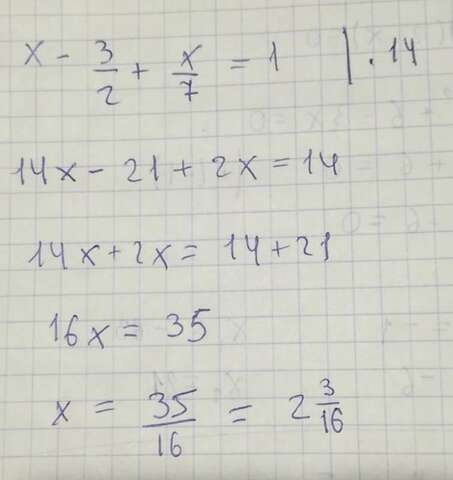 x - 3/2 + x/7 = 1 | · 14
14x - 21 + 2x = 14
14x + 2x = 14 + 21
16x = 35
x = 35/16 = 2 3/16